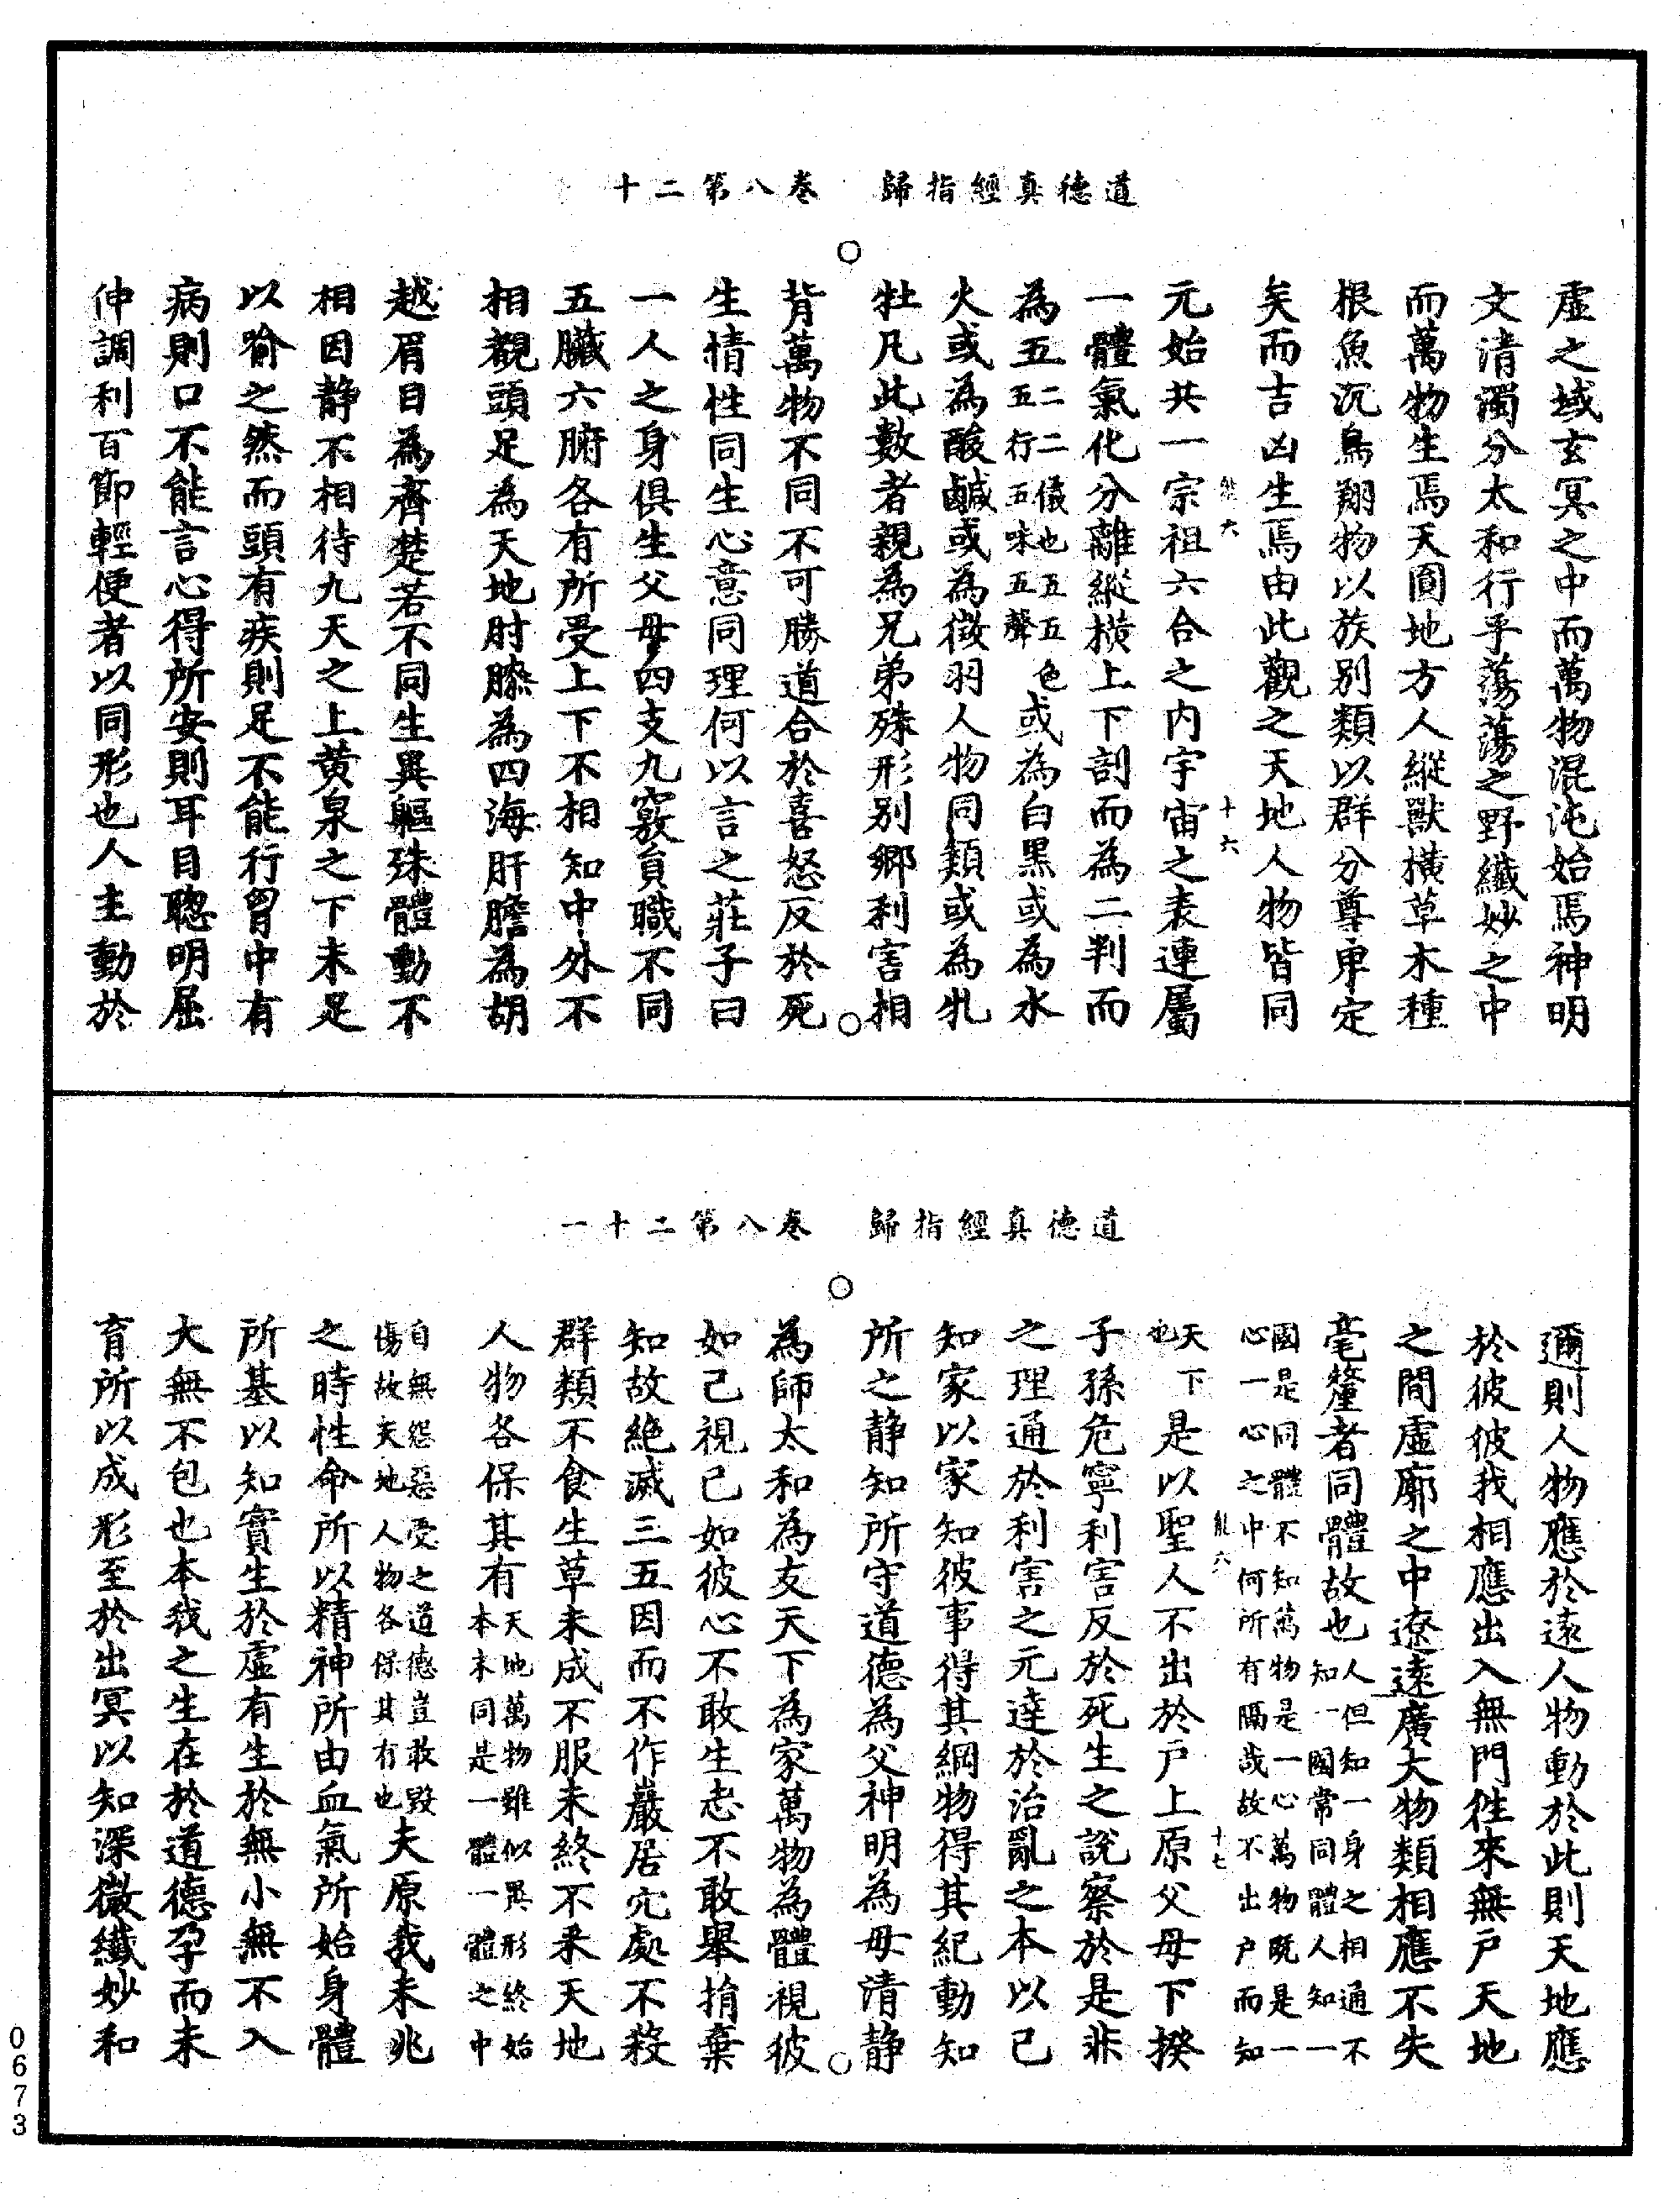 道德真經指歸　卷八第二十
虛之域玄冥之中而萬物混沌始焉神明
文清濁分太和行乎蕩蕩之野纖妙之中
而萬物生焉天圓地方人縱獸橫草木種
根魚沉鳥翔物以族別類以群分尊卑定
矣而吉凶生焉由此觀之天地人物皆同
六　十六
元始共一宗祖六合之內宇宙之表連屬
一體氣化分離縱橫上下剖而為二判而
為五二二儀也五五色五行五味五聲或為白黑或為水
火或為酸鹹或為徵羽人物同類或為牝
牡凡此數者親為兄弟殊形別鄉利害相
背萬物不同不可勝道合於喜怒反於死
生情性同生心意同理何以言之莊子曰
一人之身俱生父母四支九竅負職不同
五臟六腑各有所受上下不相知中外不
相覩頭足為天地肘膝為四海肝膽為胡
越眉目為齊楚若不同生異軀殊體動不
相因靜不相待九天之上黃泉之下未足
以喻之然而頭有疾則足不能行胷中有
病則口不能言心得所安則耳目聰明屈
伸調利百節輕便者以同形也人主動於
道德真經指歸　卷八第二十一
邇則人物應於遠人物動於此則天地應
於彼彼我相應出入無門徃來無戶天地
之間虛廓之中遼遠廣大物類相應不失
毫釐者同體故也人但知一身之相通不知一國常同體人知一
國是同體不知萬物是一心萬物既是一心一心之中何所有隔哉故不出戶而知
天下也是以聖人不出於戶上原父母下揆
能六　十七
子孫危寧利害反於死生之說察於是非
之理通於利害之元達於治亂之本以己
知家以家知彼事得其綱物得其紀動知
所之靜知所守道德為父神明為母清靜
為師太和為友天下為家萬物為體視彼
如己視己如彼心不敢生志不敢舉捐棄
知故絕滅三五因而不作巖居穴處不殺
群類不食生草未成不服未終不釆天地
人物各保其有天地萬物雖似異形終始本末同是一體一體之中
自無怨惡受之道德豈敢毀傷故天地人物各保其有也夫原我未兆
之時性命所以精神所由血氣所始身體
所基以知實生於虛有生於無小無不入
大無不包也本我之生在於道德孕而未
育所以成形至於出冥以知深微纖妙和
0673